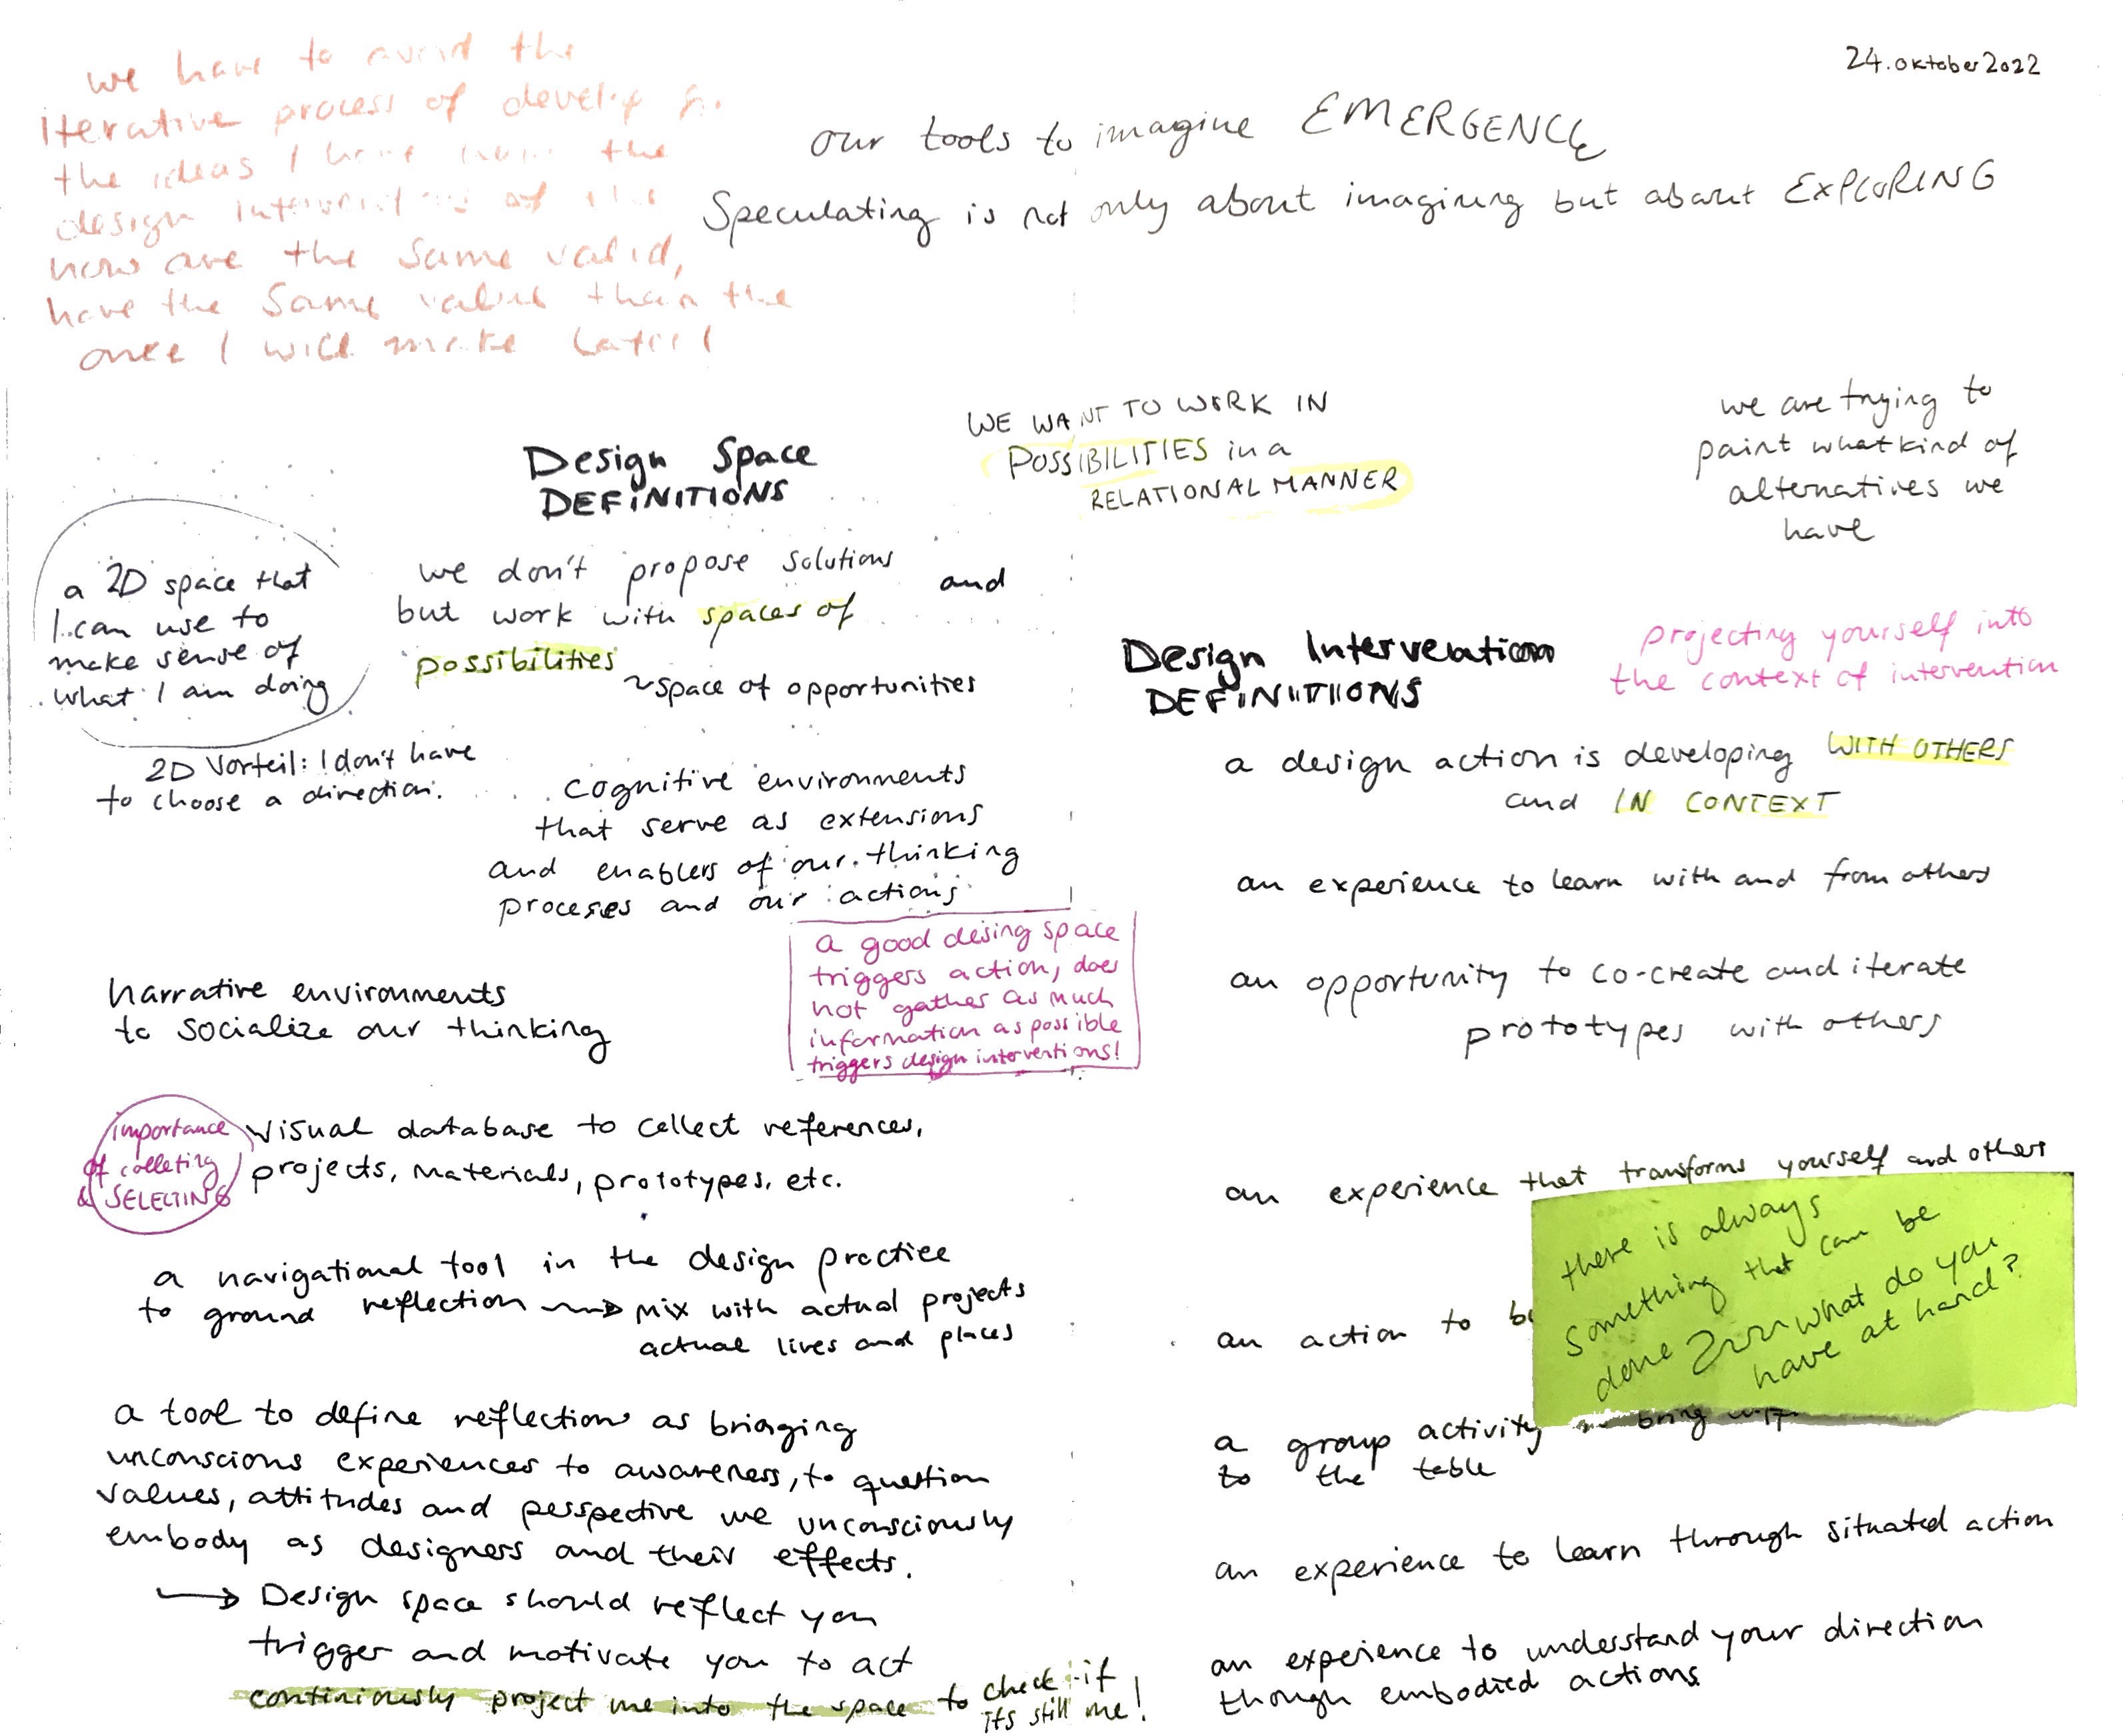 24.oktober2022
we have to avoid the
iterative process of
the ideas I have the
design
now are the same valid,
have the same value than the
once I will make later!
our tools to imagine EMERGENCE
Speculating is not only about imagining but about EXPLORING
WE WANT TO WORK IN
POSSIBILITIES in a
RELATIONAL MANNER
we are trying to
paint what kind of
alternatives we
have
Design Space
DEFINITIONS
a 2D space that
I can use to
make sense of
what I am doing
we don't propose solutions
but work with spaces of
possibilities
and
~space of opportunities
2D Vorteil: I don't have
to choose a direction.
cognitive environments
that serve as extensions
and enablers of our thinking
proceses and our actions
a good desing space
triggers action, does
not gather as much
information as possible
triggers design interventions!
narrative environments
to socialize our thinking
importance
of colleting
& SELECTING
visual database to collect references,
projects, materials, prototypes, etc.
a navigational tool in the design practice
to ground reflection → mix with actual projects
actual lives and places
a tool to define reflections as bringing
unconscious experiences to awareness, to question
values, attitudes and perspective we unconsciously
embody as designers and their effects.
→ Design space should reflect you
trigger and motivate you to act
continiously project me into the space to check if
its still me!
Design Intervention
DEFINITIONS
projecting yourself into
the context of intervention
a design action is developing WITH OTHERS
and IN CONTEXT
an experience to learn with and from others
an opportunity to co-create and iterate
prototypes with others
an experience that transforms yourself and others
there is always
something that can be
done what do you
have at hand?
an action to
a group activity bring
to the table
an experience to learn through situated action
an experience to understand your direction
though embodied actions